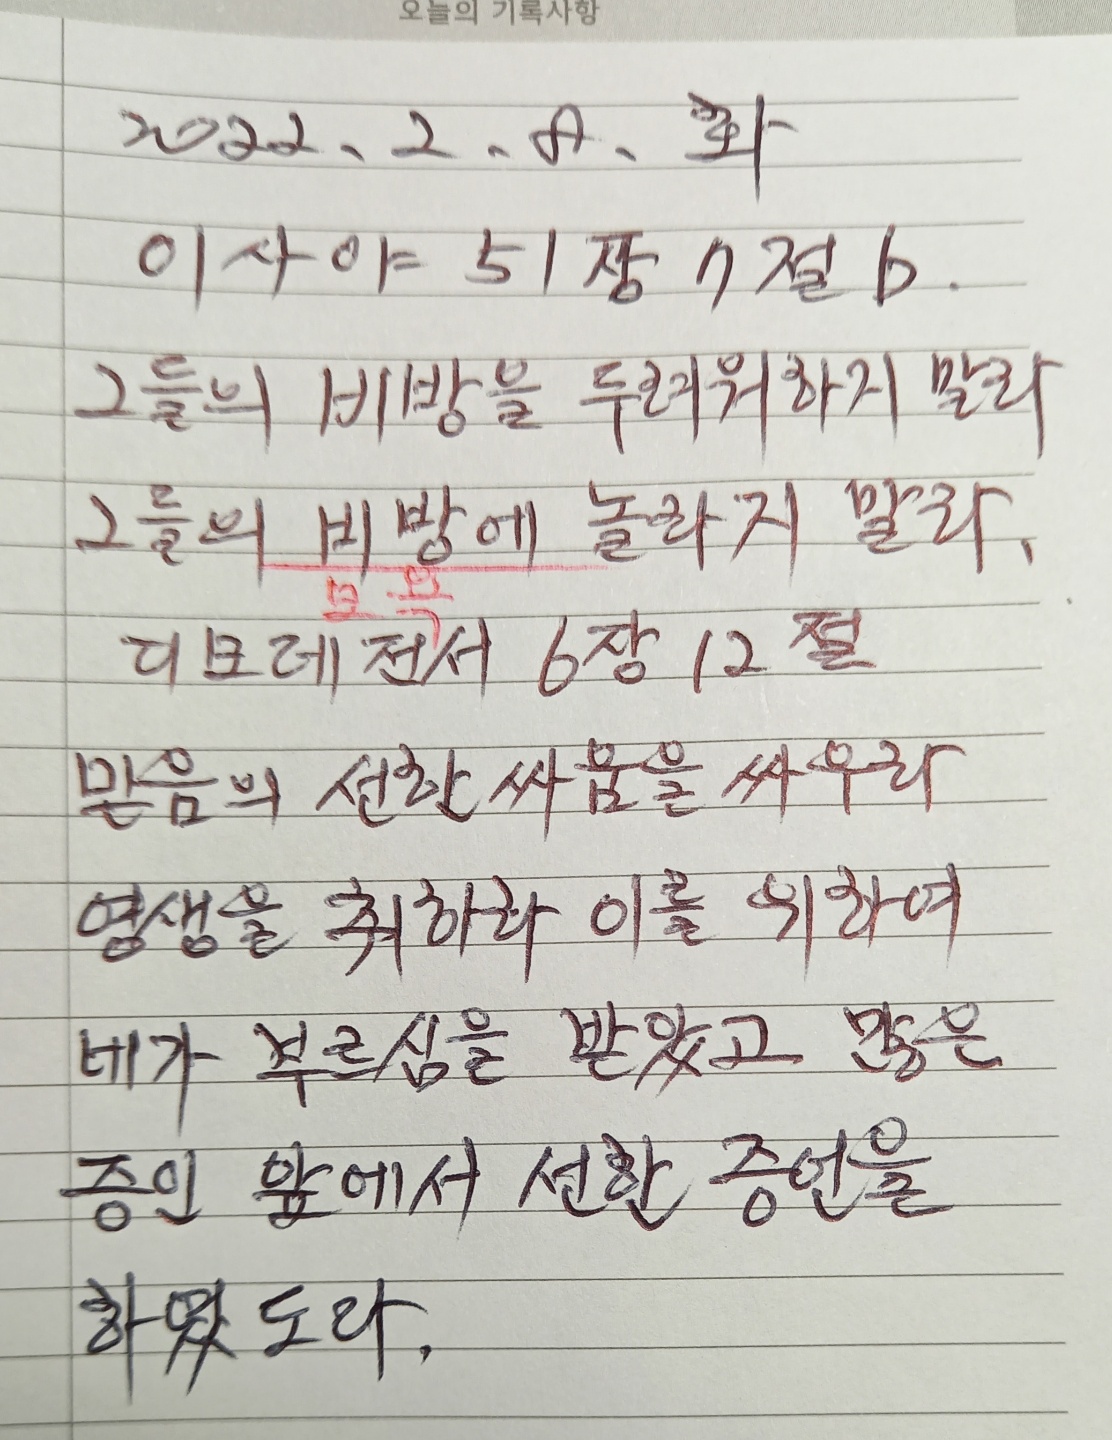 오늘의 기록사항
2022. 2. 8. 화
이사야 51장 7절 b.
그들의 비방을 두려워하지 말라
그들의 비방에 놀라지 말라.
모욕
디모데전서 6장 12절
믿음의 선한 싸움을 싸우라
영생을 취하라 이를 위하여
네가 부르심을 받았고 많은
증인 앞에서 선한 증언을
하였도다.